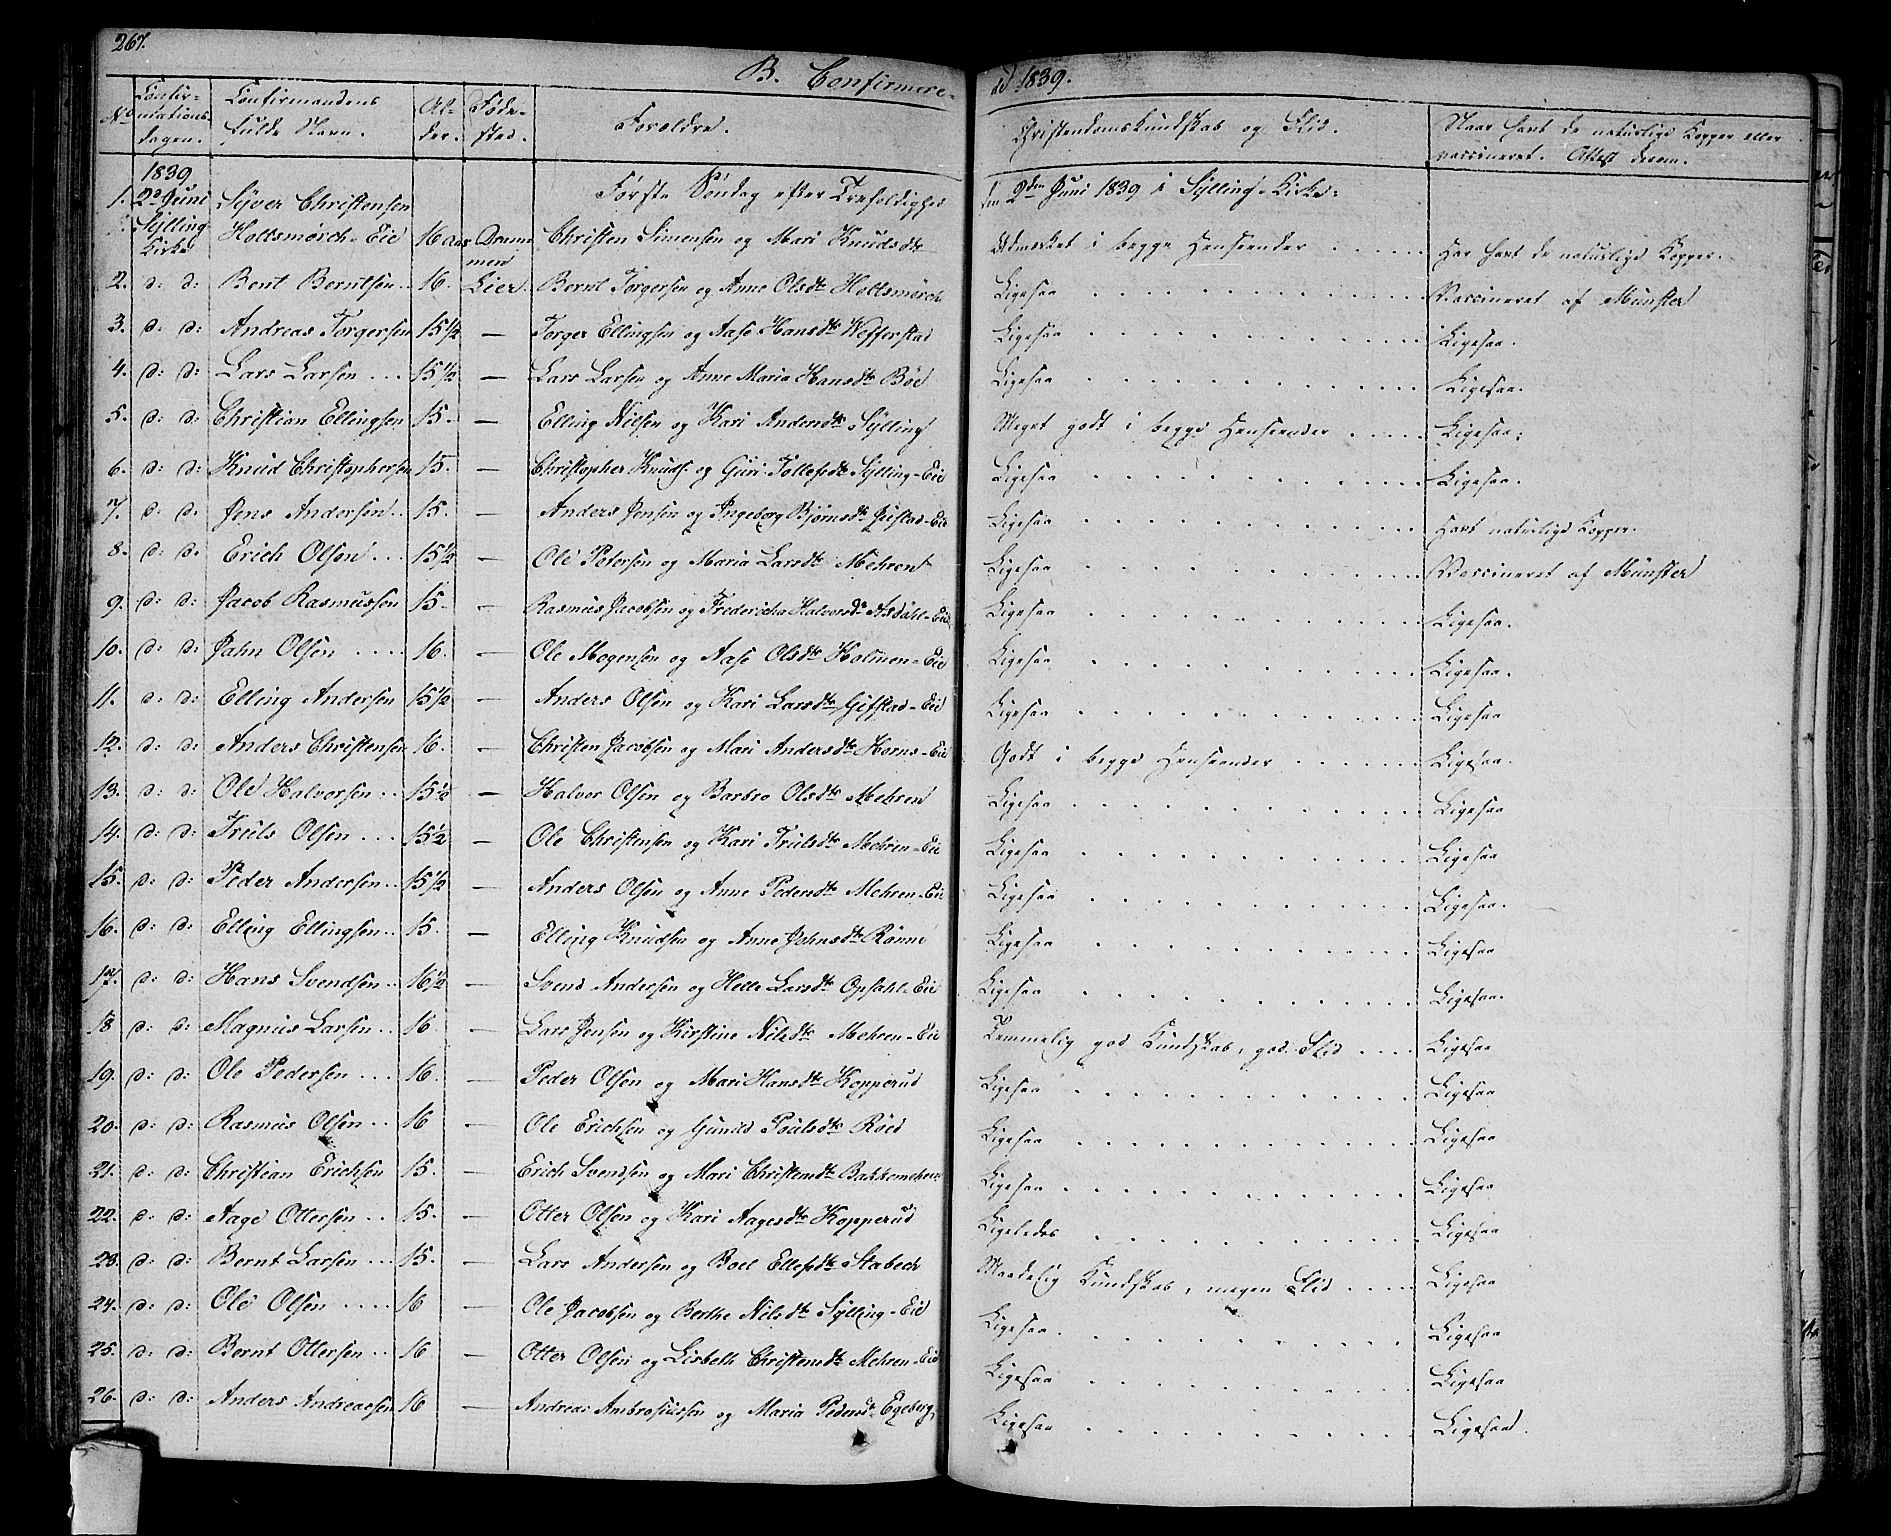 267.
B. Confirmere-
de 1839.
No Confirmations dagen. Confirmandens fulde Navn. Alder. Fødested. Forældre. Christendomskundskab og Flid. Naar havt de naturlige Kopper eller vaccineret. Attest derom.
1839
Første Søndag efter Trefoldighed
den 2den Juni 1839 i Sylling-Kirke:
1. 2d Juni Sylling Kirke Syver Christensen
Holtsmørch-Eie 16 Aar Drammen Christen Simensen og Mari Knudsdtr Udmærket i begge Henseender Har havt de naturlige Kopper.
2. d: d: Bent Berntsen 16. Lier. Bernt Torgersen og Anne Olsdtr Holtsmørch Ligesaa Vaccineret af Münster
3. d: d: Andreas Torgersen 15 1/2 — Torger Ellingsen og Aase Hansdtr Wefferstad Ligesaa Ligesaa.
4. d: d: Lars Larsen 15 1/2 — Lars Larsen og Anne Maria Hansdtr Bøe Ligesaa Ligesaa.
5. d: d: Christian Ellingsen 15. — Elling Nilsen og Kari Andersdtr Sylling Meget godt i begge Henseender Ligesaa:
6. d: d: Knud Christophersen 15. — Christopher Knuds og Guri Tollefsdtr Sylling-Eie Ligesaa Ligesaa.
7. d: d. Jens Andersen 15. — Anders Jensen og Ingeborg Bjørnsdtr Eie Ligesaa Havt naturlige Kopper.
8. d: d. Erich Olsen 15 1/2 — Ole Petersen og Maria Larsdtr Mehrent Ligesaa Vaccineret af Münster
9. d: d: Jacob Rasmussen 15. — Rasmus Jacobsen og Fredericha Halvorsdr Asdahl-Eie Ligesaa Ligesaa.
10. d: d: Jahn Olsen 16. — Ole Mogensen og Aase Olsdtr Holmen-Eie Ligesaa Ligesaa.
11. d: d: Elling Andersen 15 1/2 — Anders Olsen og Kari Larsdtr Gifstad-Eie Ligesaa Ligesaa
12. d: d: Anders Christensen 16. — Christen Jacobsen og Mari Andersdtr Horns-Eie Godt i begge Henseender Ligesaa.
13. d: d: Ole Halvorsen 15 1/2 — Halvor Olsen og Barbro Olsdtr Mehren Ligesaa Ligesaa
14. d: d: Truls Olsen 15 1/2 — Ole Christensen og Kari Trulsdtr Mehren-Eie Ligesaa Ligesaa
15. d: d: Peder Andersen 15 1/2 — Anders Olsen og Anne Pedersdtr Mehren-Eie Ligesaa Ligesaa.
16. d: d: Elling Ellingsen 15. — Elling Knudsen og Anne Jahnsdtr Rønne Ligesaa Ligesaa
17. d: d: Hans Svendsen 16 1/2 — Svend Andersen og Helle Larsdtr Opsahl-Eie Ligesaa Ligesaa.
18 d: d: Magnus Larsen 16 — Lars Jensen og Kirstine Nilsdtr Mehren-Eie Temmelig god Kundskab, god Flid Ligesaa
19. d: d: Ole Pedersen 16. — Peder Olsen og Mari Hansdtr Kopperud Ligesaa Ligesaa
20. d: d: Rasmus Olsen 16 — Ole Erichsen og Gunild Poulsdtr Røed Ligesaa Ligesaa
21. d: d: Christian Erichsen 15. — Erich Svendsen og Mari Christensdtr Bakkemehren Ligesaa Ligesaa
22. d: d: Aage Ottersen 15. — Otter Olsen og Kari Aagesdtr Kopperud Ligeledes Ligesaa
23. d: d: Bernt Larsen 15. — Lars Andersen og Boel Ellefsdtr Stabech Maadelig Kundskab, megen Flid Ligesaa
24. d: d: Ole Olsen 16 — Ole Jacobsen og Berthe Nilsdtr Sylling-Eie Ligesaa. Ligesaa
25. d: d: Bernt Ottersen 16 — Otter Olsen og Lisbeth Christensdtr Mehren-Eie Ligesaa Ligesaa
26. d: d: Anders Andreassen 16 — Andreas Ambrosiussen og Maria Pedersdtr Egeberg Ligesaa Ligesaa.